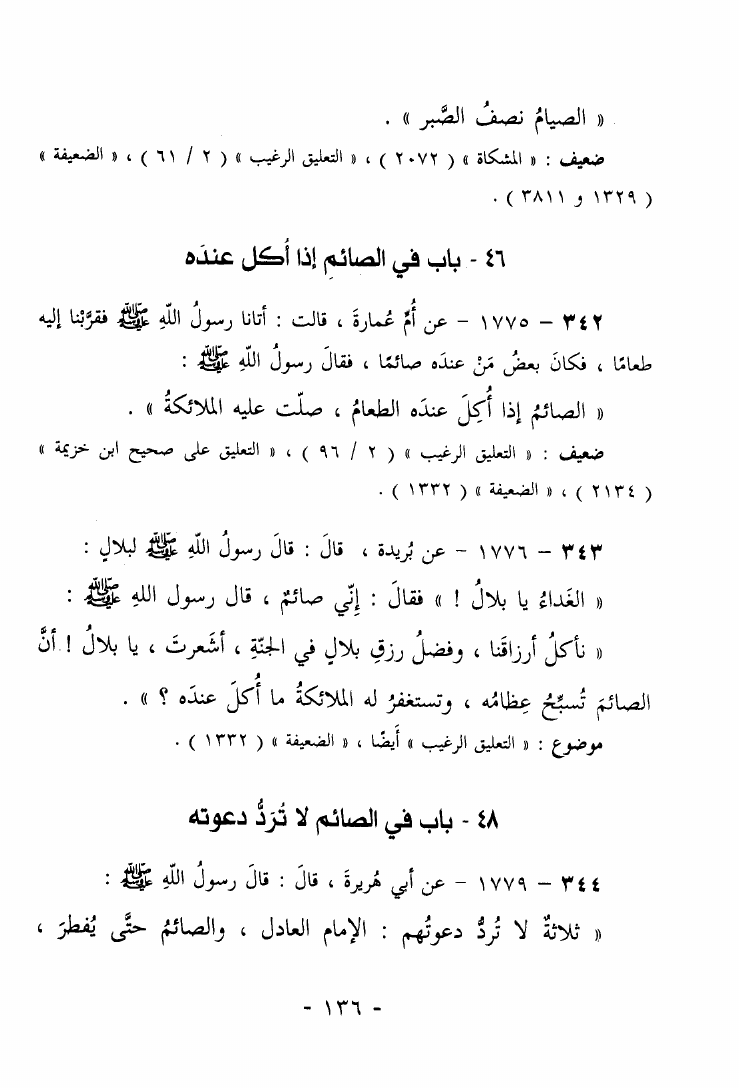 « الصيامُ نصفُ الصَّبر » .
ضعيف : « المشكاة » ( ٢٠٧٢ ) ، « التعليق الرغيب » ( ٢ / ٦١ ) ، « الضعيفة »
( ١٣٢٩ و ٣٨١١ ) .
٤٦ - باب في الصائم إذا أُكل عندَه
٣٤٢ – ١٧٧٥ – عن أُمِّ عُمارةَ ، قالت : أتانا رسولُ اللّهِ ﷺ فقرَّبْنا إليه
طعامًا ، فكانَ بعضُ مَنْ عنده صائمًا ، فقالَ رسولُ اللّهِ ﷺ :
« الصائمُ إذا أُكِلَ عندَه الطعامُ ، صلّت عليه الملائكةُ » .
ضعيف : « التعليق الرغيب » ( ٢ / ٩٦ ) ، « التعليق على صحيح ابن خزيمة »
( ٢١٣٤ ) ، « الضعيفة » ( ١٣٣٢ ) .
٣٤٣ – ١٧٧٦ – عن بُريدة ، قالَ : قالَ رسولُ اللّهِ ﷺ لبلالٍ :
« الغَداءُ يا بلالُ ! » فقالَ : إِنّي صائمٌ ، قال رسول اللهِ ﷺ :
« نأكلُ أرزاقَنا ، وفضلُ رزقِ بلالٍ في الجنّةِ ، أشَعرتَ ، يا بلالُ ! أنَّ
الصائمَ تُسبِّحُ عِظامُه ، وتستغفرُ له الملائكةُ ما أُكلَ عندَه ؟ » .
موضوع : « التعليق الرغيب » أَيضًا ، « الضعيفة » ( ١٣٣٢ ) .
٤٨ - باب في الصائم لا تُرَدُّ دعوته
٣٤٤ – ١٧٧٩ – عن أبي هُريرةَ ، قالَ : قالَ رسولُ اللّهِ ﷺ :
« ثلاثةٌ لا تُردُّ دعوتُهم : الإمام العادل ، والصائمُ حتَّى يُفطرَ ،
- ١٣٦ -